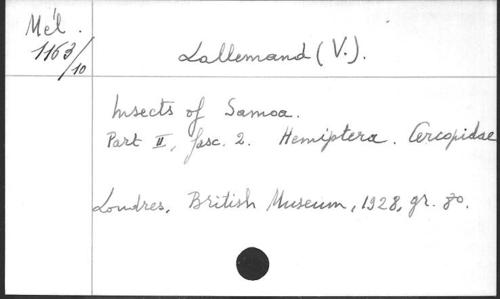 Mél.
1163/10
Lallemand (V.).
Insects of Samoa.
Part II, fasc. 2. Hemiptera. Cercopidae
Londres, British Museum, 1928, gr. 8o.